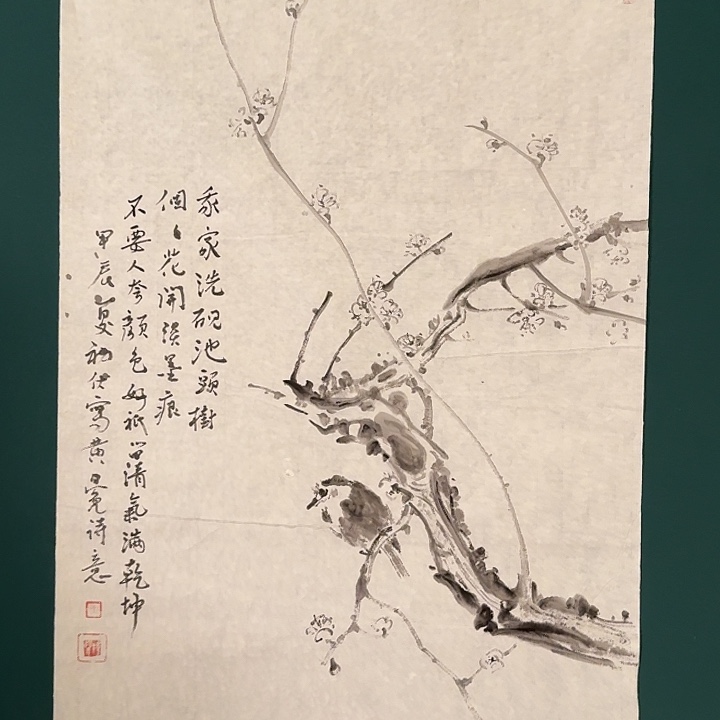 我家洗硯池頭樹
個々花開淡墨痕
不要人夸顏色好祇留清氣滿乾坤
甲辰夏初伏寫黃冕詩意